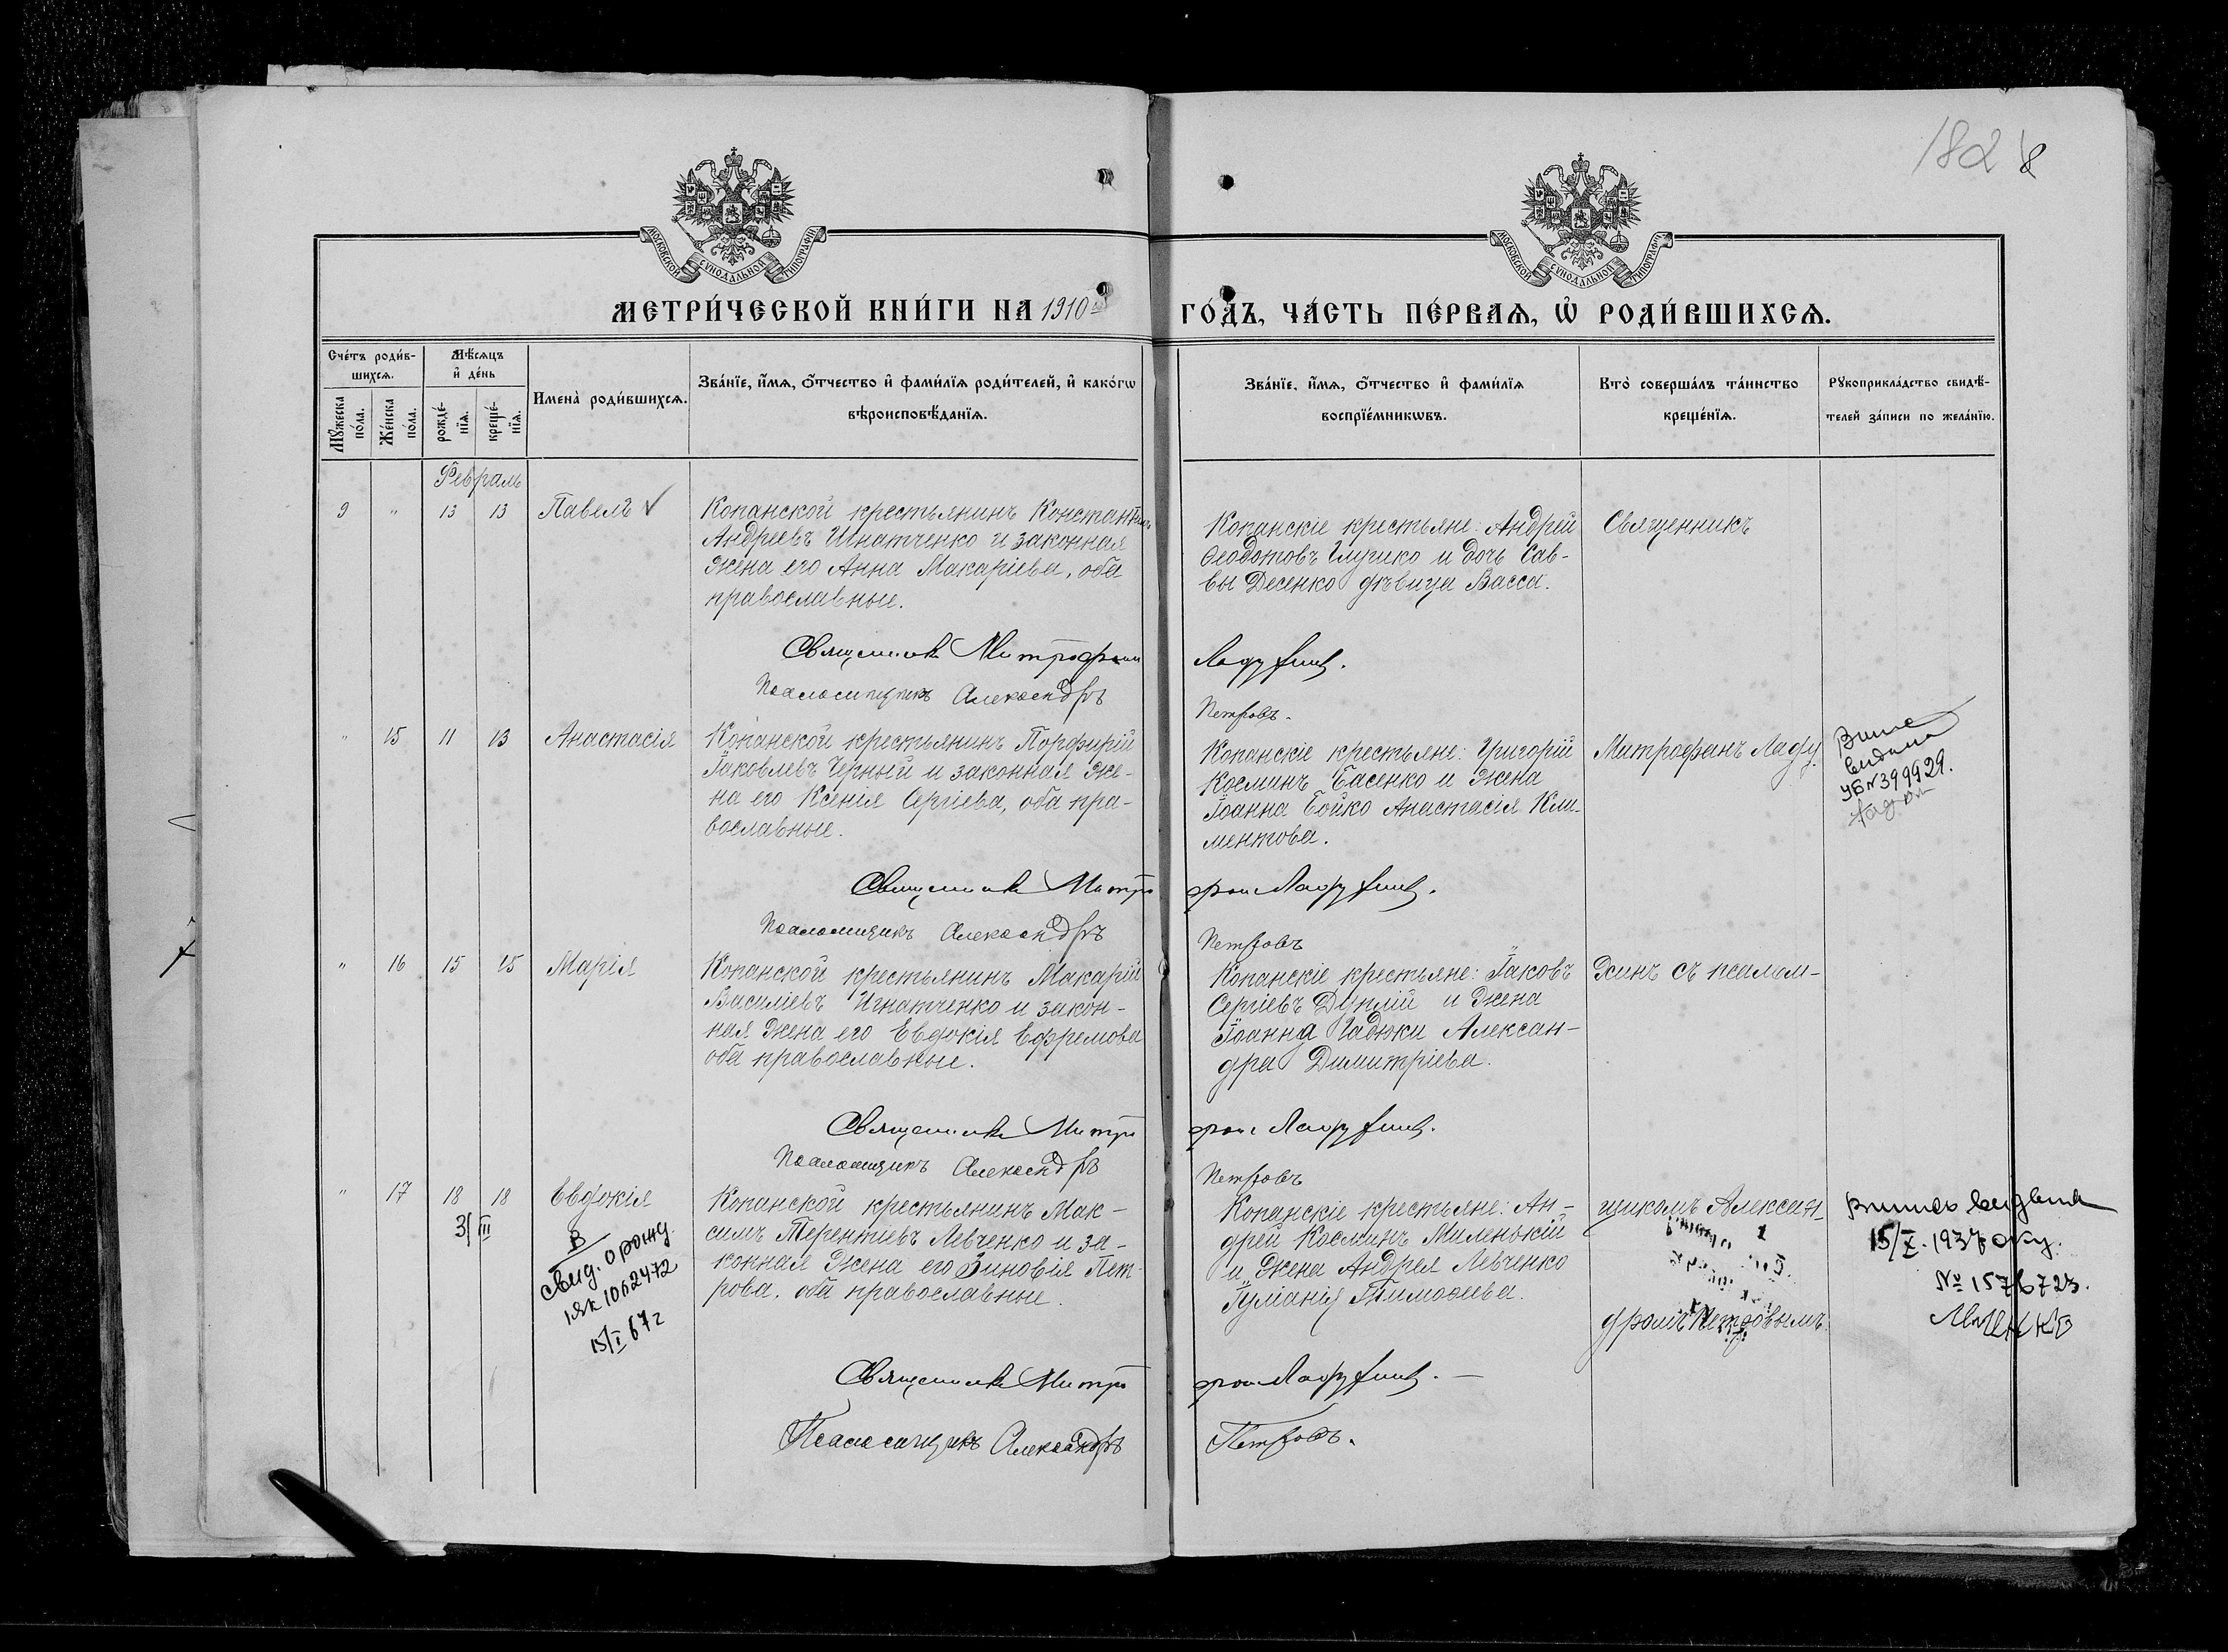 182
8
МОСКОВСКОЙ СУНОДАЛЬНОЙ ТИПОГРАФІИ
МОСКОВСКОЙ СУНОДАЛЬНОЙ ТИПОГРАФІИ
МЕТРИ́ЧЕСКОЙ КНИ́ГИ НА 1910
ГО́ДЪ, ЧА́СТЬ ПЕ́РВАѦ, Ѽ РОДИ́ВШИХСѦ.
Сче́тъ роди́в-
шихсѧ.
Мꙋ́жеска по́ла.
Же́нска по́ла.
Мѣ́сѧцъ
и҆ де́нь
рожде́-
нїѧ.
креще́-
нїѧ.
Имена̀ роди́вшихсѧ.
Зва́нїе, и҆́мѧ, ѻ҆́тчество и҆ фами́лїѧ роди́телей, и҆ како́гѡ
вѣроисповѣ́данїѧ.
Зва́нїе, и҆́мѧ, ѻ҆́тчество и҆ фами́лїѧ
воспрїе́мникѡвъ.
Кто̀ соверша́лъ та́инство
креще́нїѧ.
Рꙋкоприкла́дство свидѣ́-
телей за́писи по жела́нїю.
Февраль
9 " 13 13 Павелъ
Копанской крестьянинъ Константинъ
Андреевъ Игнатченко и законная
жена его Анна Макаріева, оба
православные.
Копанскіе крестьяне: Андрей
Ѳеодотовъ и дочь Сав-
вы Десенко дѣвица Васса.
Священникъ
Священникъ Митрофанъ
Псаломщикъ Александръ
Петровъ.
" 15 11 13 Анастасія
Копанской крестьянинъ Порфирій
Іаковлевъ Черный и законная же-
на его Ксенія Сергіева, оба пра-
вославные.
Копанскіе крестьяне: Григорій
Косминъ Басенко и жена
Іоанна Бойко Анастасія Кли-
ментова.
Митрофанъ Ладу
видана
УБ №399929.
Священникъ Митро
фанъ
Псаломщикъ Александръ
Петровъ
" 16 15 15 Марія
Копанской крестьянинъ Макарій
Василіевъ Игнатченко и закон-
ная жена его Евдокія Ефремова
оба православные.
Копанскіе крестьяне: Іаковъ
Сергіевъ Дуплій и жена
Іоанна Гадюки Алексан-
дра Димитріева.
жинъ съ псалом-
Священникъ Митро
фанъ
Псаломщикъ Александръ
Петровъ
" 17 18 18 Евдокія
3/III
В
свид. о рожд.
1062472
15/I 67 г
Копанской крестьянинъ Мак-
симъ Терентіевъ Левченко и за-
конная жена его Зиновія Пет-
рова. оба православные.
Копанскіе крестьяне: Ан-
дрей Косминъ Миленькій
и жена Андрея Левченко
Іуліанія Тимоѳеева.
щикомъ Алексан-
дромъ Петровымъ
15/X. 1937 року.
№ 1576723.
Священникъ Митро
фанъ
Псаломщикъ Александръ
Петровъ.